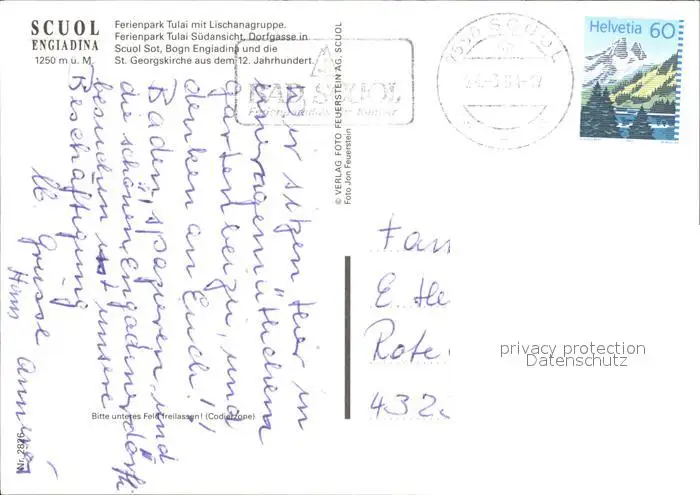 SCUOL
ENGIADINA
1250 m ü. M.
Ferienpark Tulai mit Lischanagruppe.
Ferienpark Tulai Südansicht, Dorfgasse in
Scuol Sot, Bogn Engiadina und die
St. Georgskirche aus dem 12. Jahrhundert.
SCUOL
Helvetia 60
© VERLAG FOTO FEUERSTEIN AG, SCUOL
Foto Jon Feuerstein
Wir sitzen hier in
gemütlichem
und
denken an Euch!
Baden, spazieren und
die schönen Engadinerdörfli
besuchen ist unsere
Beschäftigung
lb. Grüsse
Hans
Fam
E. He
Rote
432
privacy protection
Datenschutz
Bitte unteres Feld freilassen! (Codierzone)
Nr. 2826